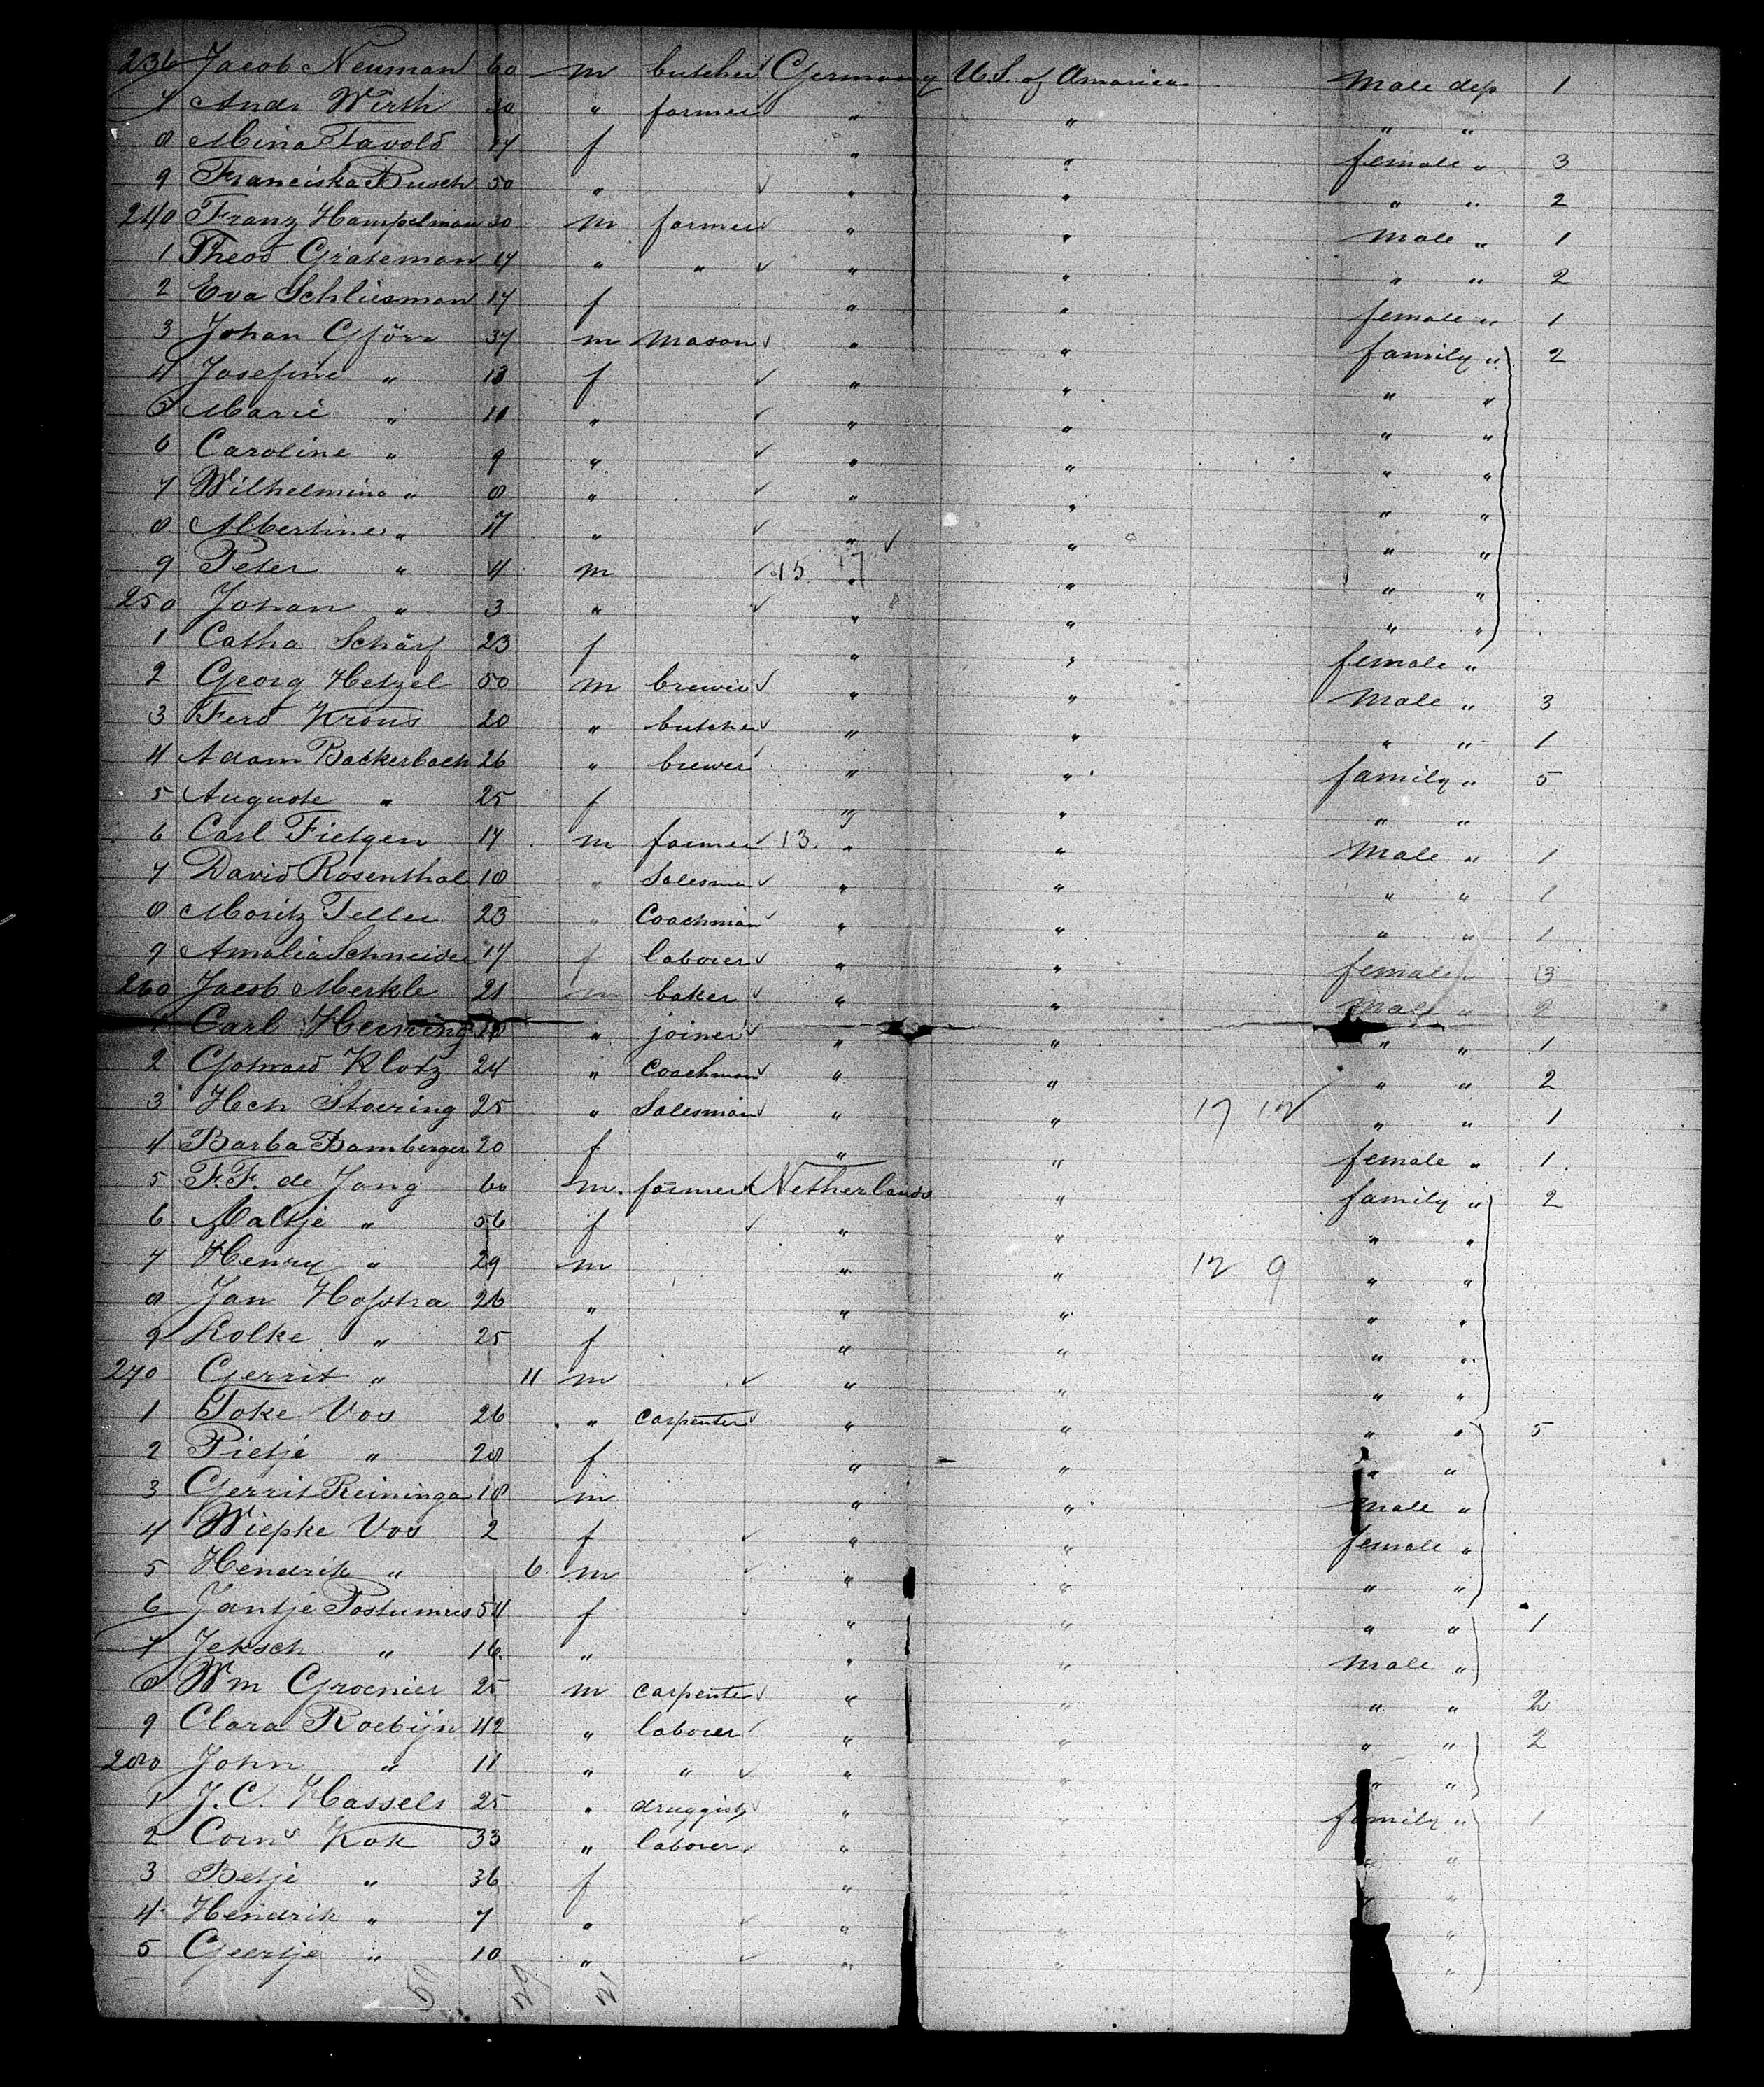 236 Jacob Neuman 60 m butcher Germany U.S. of America Male dep 1
7 Andr Wirth 30 " farmer " " " "
8 Mina Tavold 17 f " " female " 3
9 Franciska Busch 50 " " " " " 2
240 Franz Hampelman 30 m farmer " " Male " 1
1 Theod Grateman 17 " " " " " " 2
2 Eva Schliesman 17 f " " female " 1
3 Johan 37 m Mason " " family " 2
4 Josefine " 13 f " " " "
5 Marie " 11 " " " " "
6 Caroline " 9 " " " " "
7 Wilhelmina " 8 " " " " "
8 Albertine " 17 " " " " "
9 Peter " 4 m 15 17 " " " "
250 Johan " 3 " " " " "
1 Catha Schärf 23 f " " female "
2 Georg Hetzel 50 m brewer " " Male " 3
3 Ferd Krous 20 " butcher " " " " 1
4 Adam Backerbach 26 " brewer " " family " 5
5 Auguste " 25 f " " " "
6 Carl Fietgen 17 m farmer 13 " " Male " 1
7 David Rosenthal 18 " Salesman " " " " 1
8 Moritz Teller 23 " Coachman " " " " 1
9 Amalia Schneider 17 f laborer " " female " 3
260 Jacob Merkle 21 m baker " " Male " 2
1 Carl " joiner " " " " 1
2 Klotz 24 " Coachman " " " " 2
3 Hch Stoering 25 " Salesman " " 17 12 " " 1
4 Barba Bamberger 20 f " " female " 1
5 F.F. de Jong 60 m farmer Netherlands " family " 2
6 Maltje " 56 f " " " "
7 Henry " 29 m " " 12 9 " "
8 Jan Hofstra 26 " " " " "
9 Kolke " 25 f " " " "
270 Gerrit " 11 m " " " "
1 Foke Vos 26 " carpenter " " " " 5
2 Pietje " 28 f " " " "
3 Gerrit Reininga 18 m " " Male "
4 Wiepke Vos 2 f " " female "
5 Hendrik " 6 m " " " "
6 Jantje Postumus 54 f " " " " 1
7 Jeksch " 16 " " " Male "
8 Wm Groenier 25 m carpenter " " " " 2
9 Clara Roebijn 42 " laborer " " " " 2
280 John " 11 " " " " " "
1 J.C. Hassels 25 " druggist " " family " 1
2 Corns Kok 33 " laborer " " " "
3 Betje " 36 f " " "
4 Hendrik " 7 " " " "
5 Geertje " 10 " " " "
50 29 21